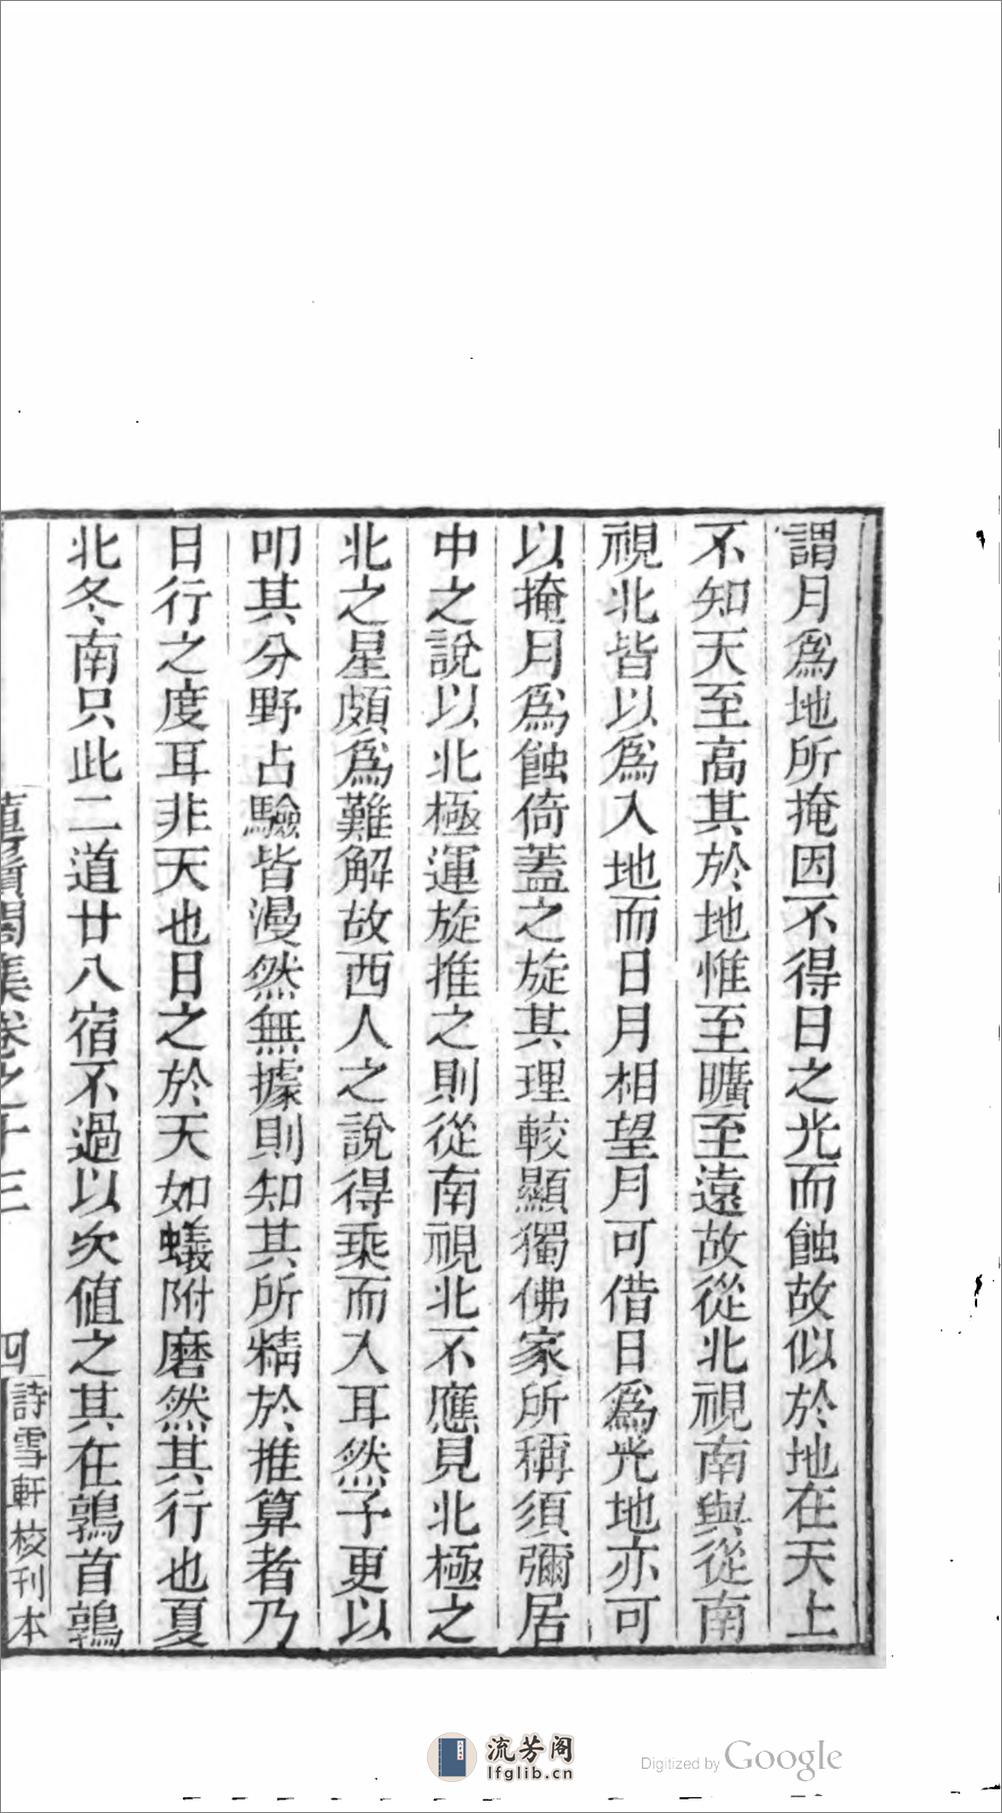 謂月爲地所掩因不得日之光而蝕故似於地在天上
不知天至高其於地惟至曠至遠故從北視南與從南
視北皆以爲入地而日月相望月可借日爲光地亦可
以掩月爲蝕倚蓋之旋其理較顯獨佛家所稱須彌居
中之說以北極運旋推之則從南視北不應見北極之
北之星頗爲難解故西人之說得乘而入耳然予更以
叩其分野占驗皆漫然無據則知其所精於推算者乃
日行之度耳非天也日之於天如蟻附磨然其行也夏
北冬南只此二道廿八宿不過以次値之其在鶉首鶉
集卷之十三
四
詩雪軒校刊本
流芳阁
lfglib.cn
Digitized by Google